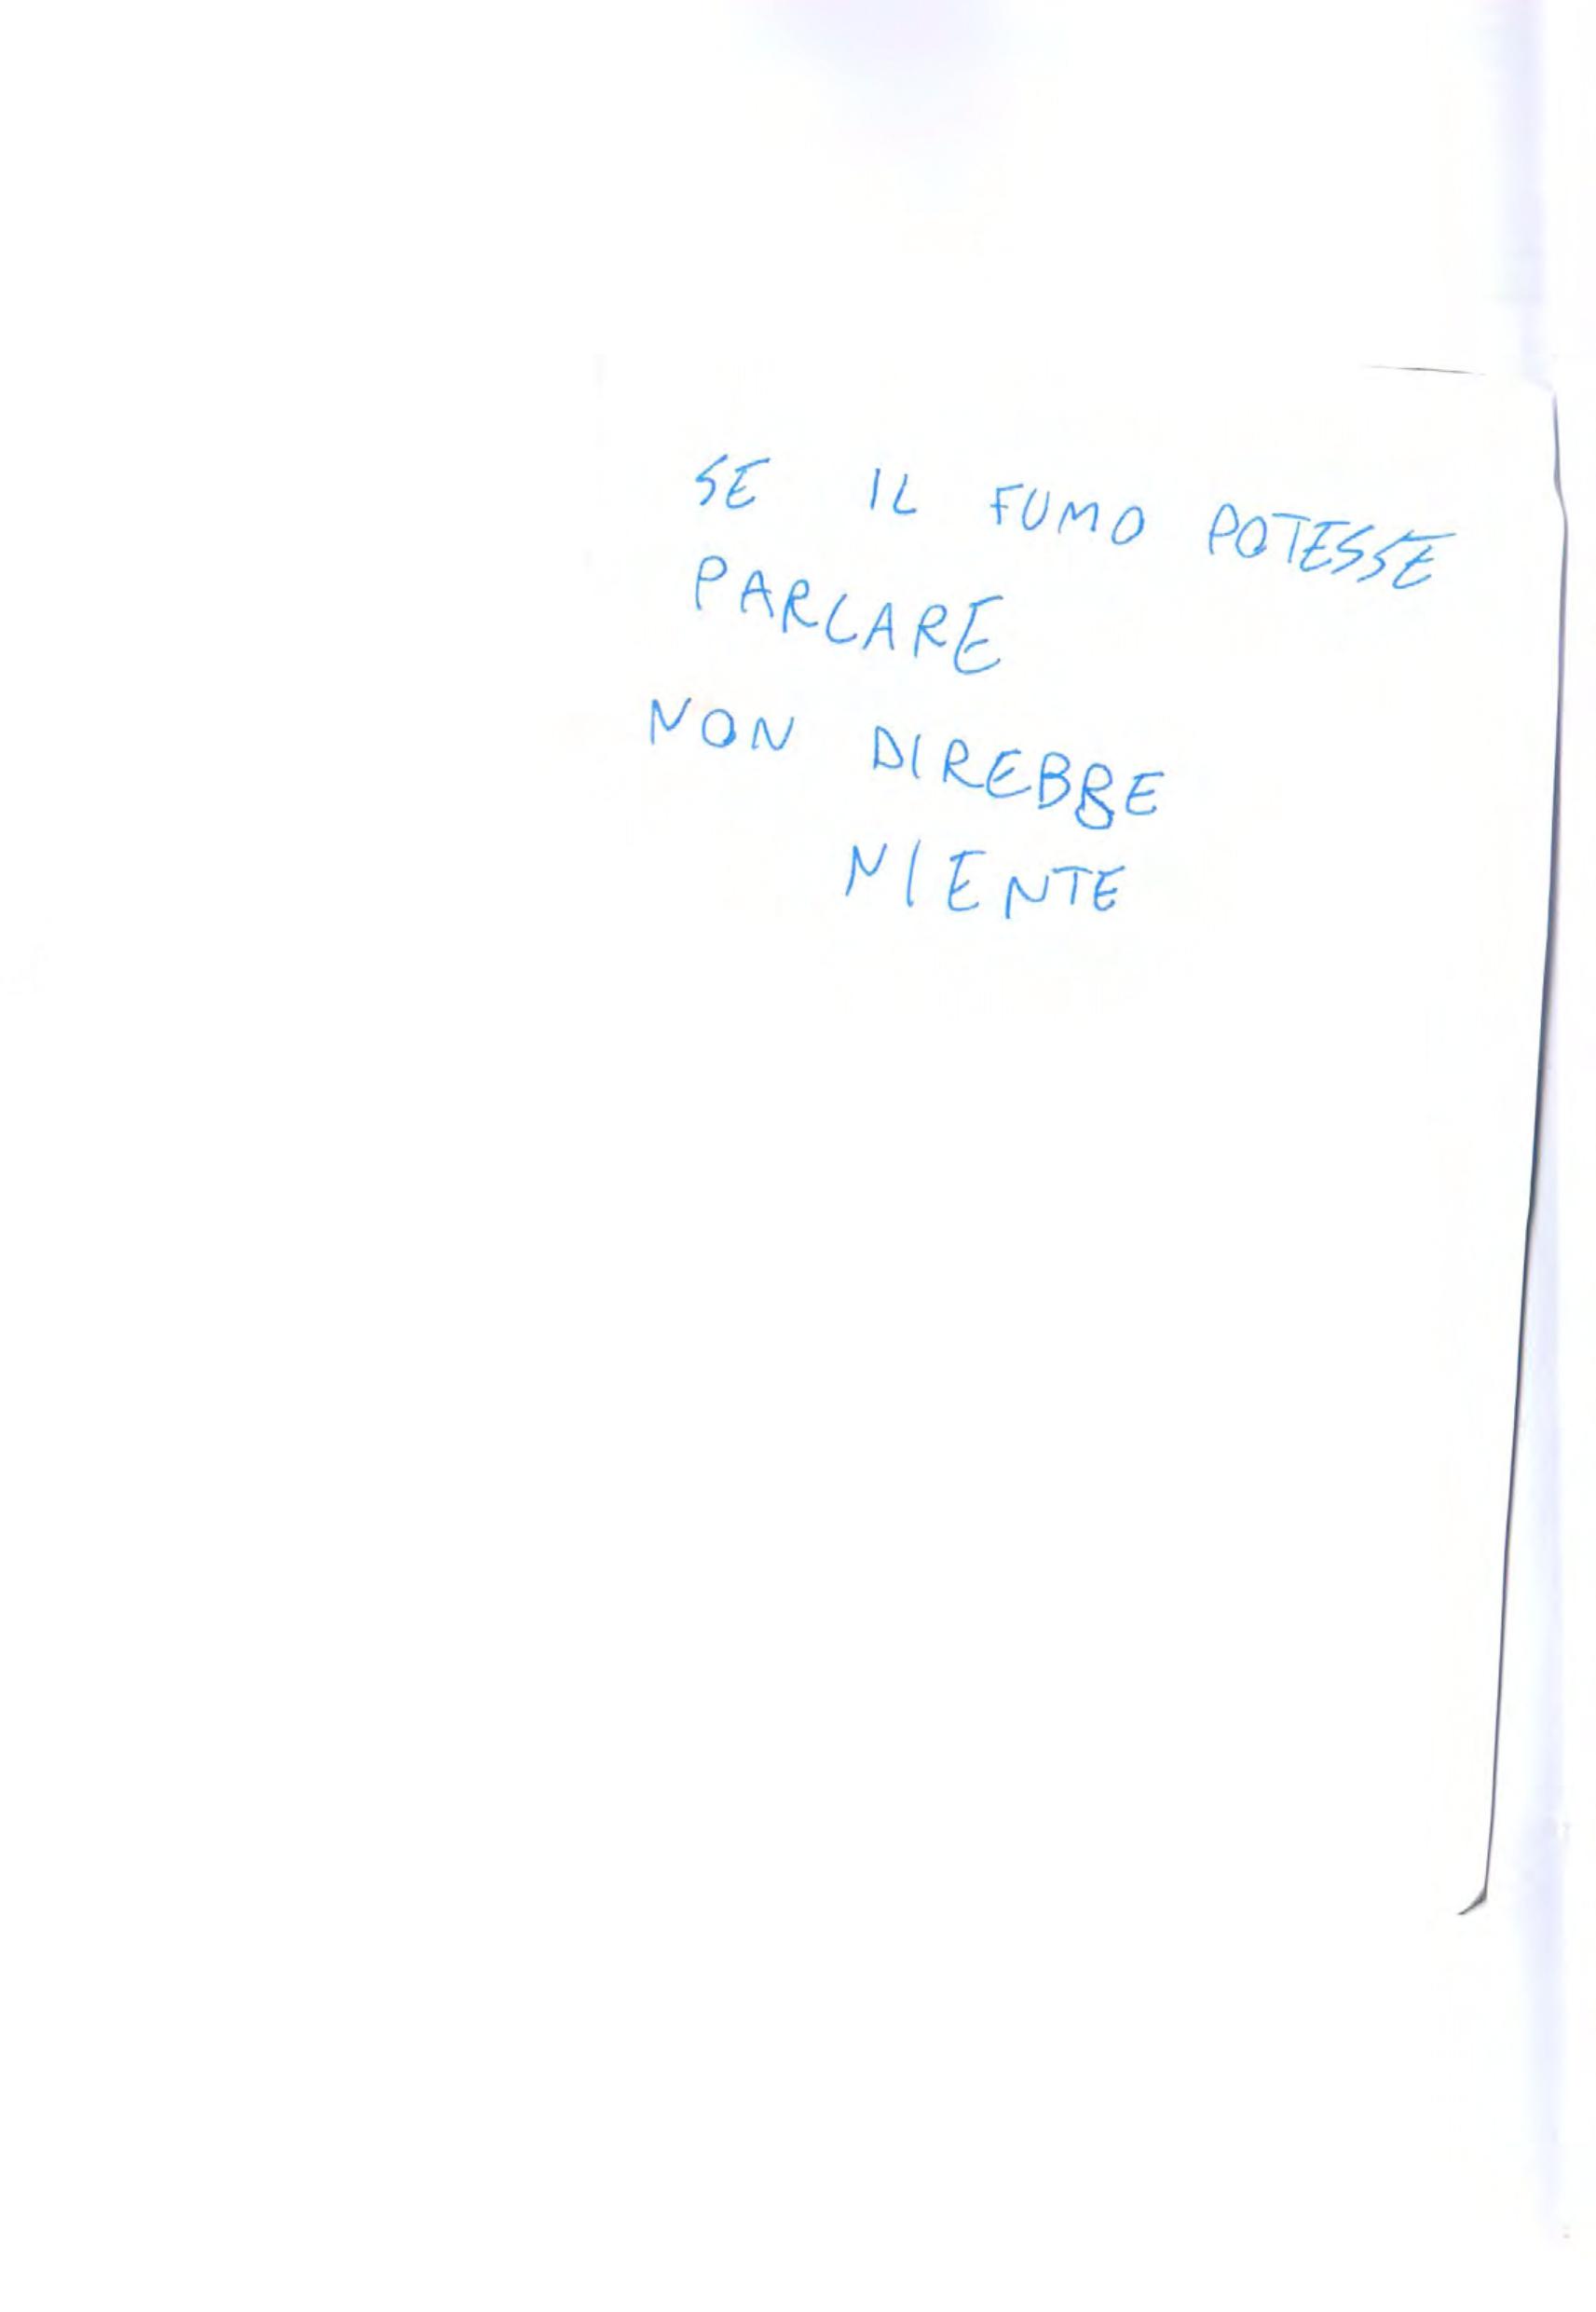 SE IL FUMO POTESSE
PARLARE
NON DIREBBE
NIENTE